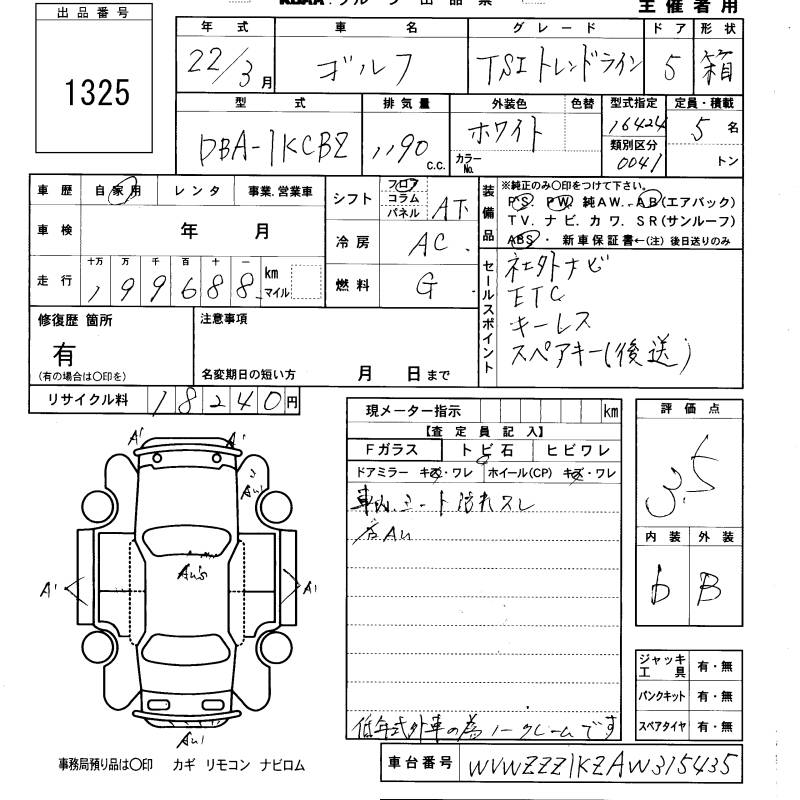 出品番号
1325
主催者用
年式 車名 グレード ドア 形状
22/3月 ゴルフ TSIトレンドライン 5 箱
型式 排気量 外装色 色替 型式指定 定員・積載
DBA-1KCBZ 1190 c.c. ホワイト カラーNo. 16424 5名
類別区分
0041 トン
車歴 自家用 レンタ 事業.営業車
車検 年 月
十万 万 千 百 十 一
走行 199688 km マイル
シフト フロア コラム パネル AT
冷房 AC
燃料 G
装備品 ※純正のみ○印をつけて下さい。
PS. PW. 純AW. AB(エアバック)
TV. ナビ. カワ. SR(サンルーフ)
ABS ・ 新車保証書←(注) 後日送りのみ
セールスポイント
ナビ
ETC
キーレス
スペアキー(後送)
修復歴 箇所
有
(有の場合は○印を)
注意事項
名変期日の短い方 月 日まで
リサイクル料 18240円
現メーター指示 km
【査定員記入】
Fガラス トビ石 ヒビワレ
ドアミラー キズ・ワレ ホイール(CP) キズ・ワレ
車内シート汚れスレ
各AU
低年式外車の為ノークレームです
評価点
3.5
内装 外装
D B
A' A'
AU1
AU's
A' A'
AU1
ジャッキ工具 有・無
パンクキット 有・無
スペアタイヤ 有・無
事務局預り品は○印 カギ リモコン ナビロム
車台番号 WVWZZZ1KZAW315435